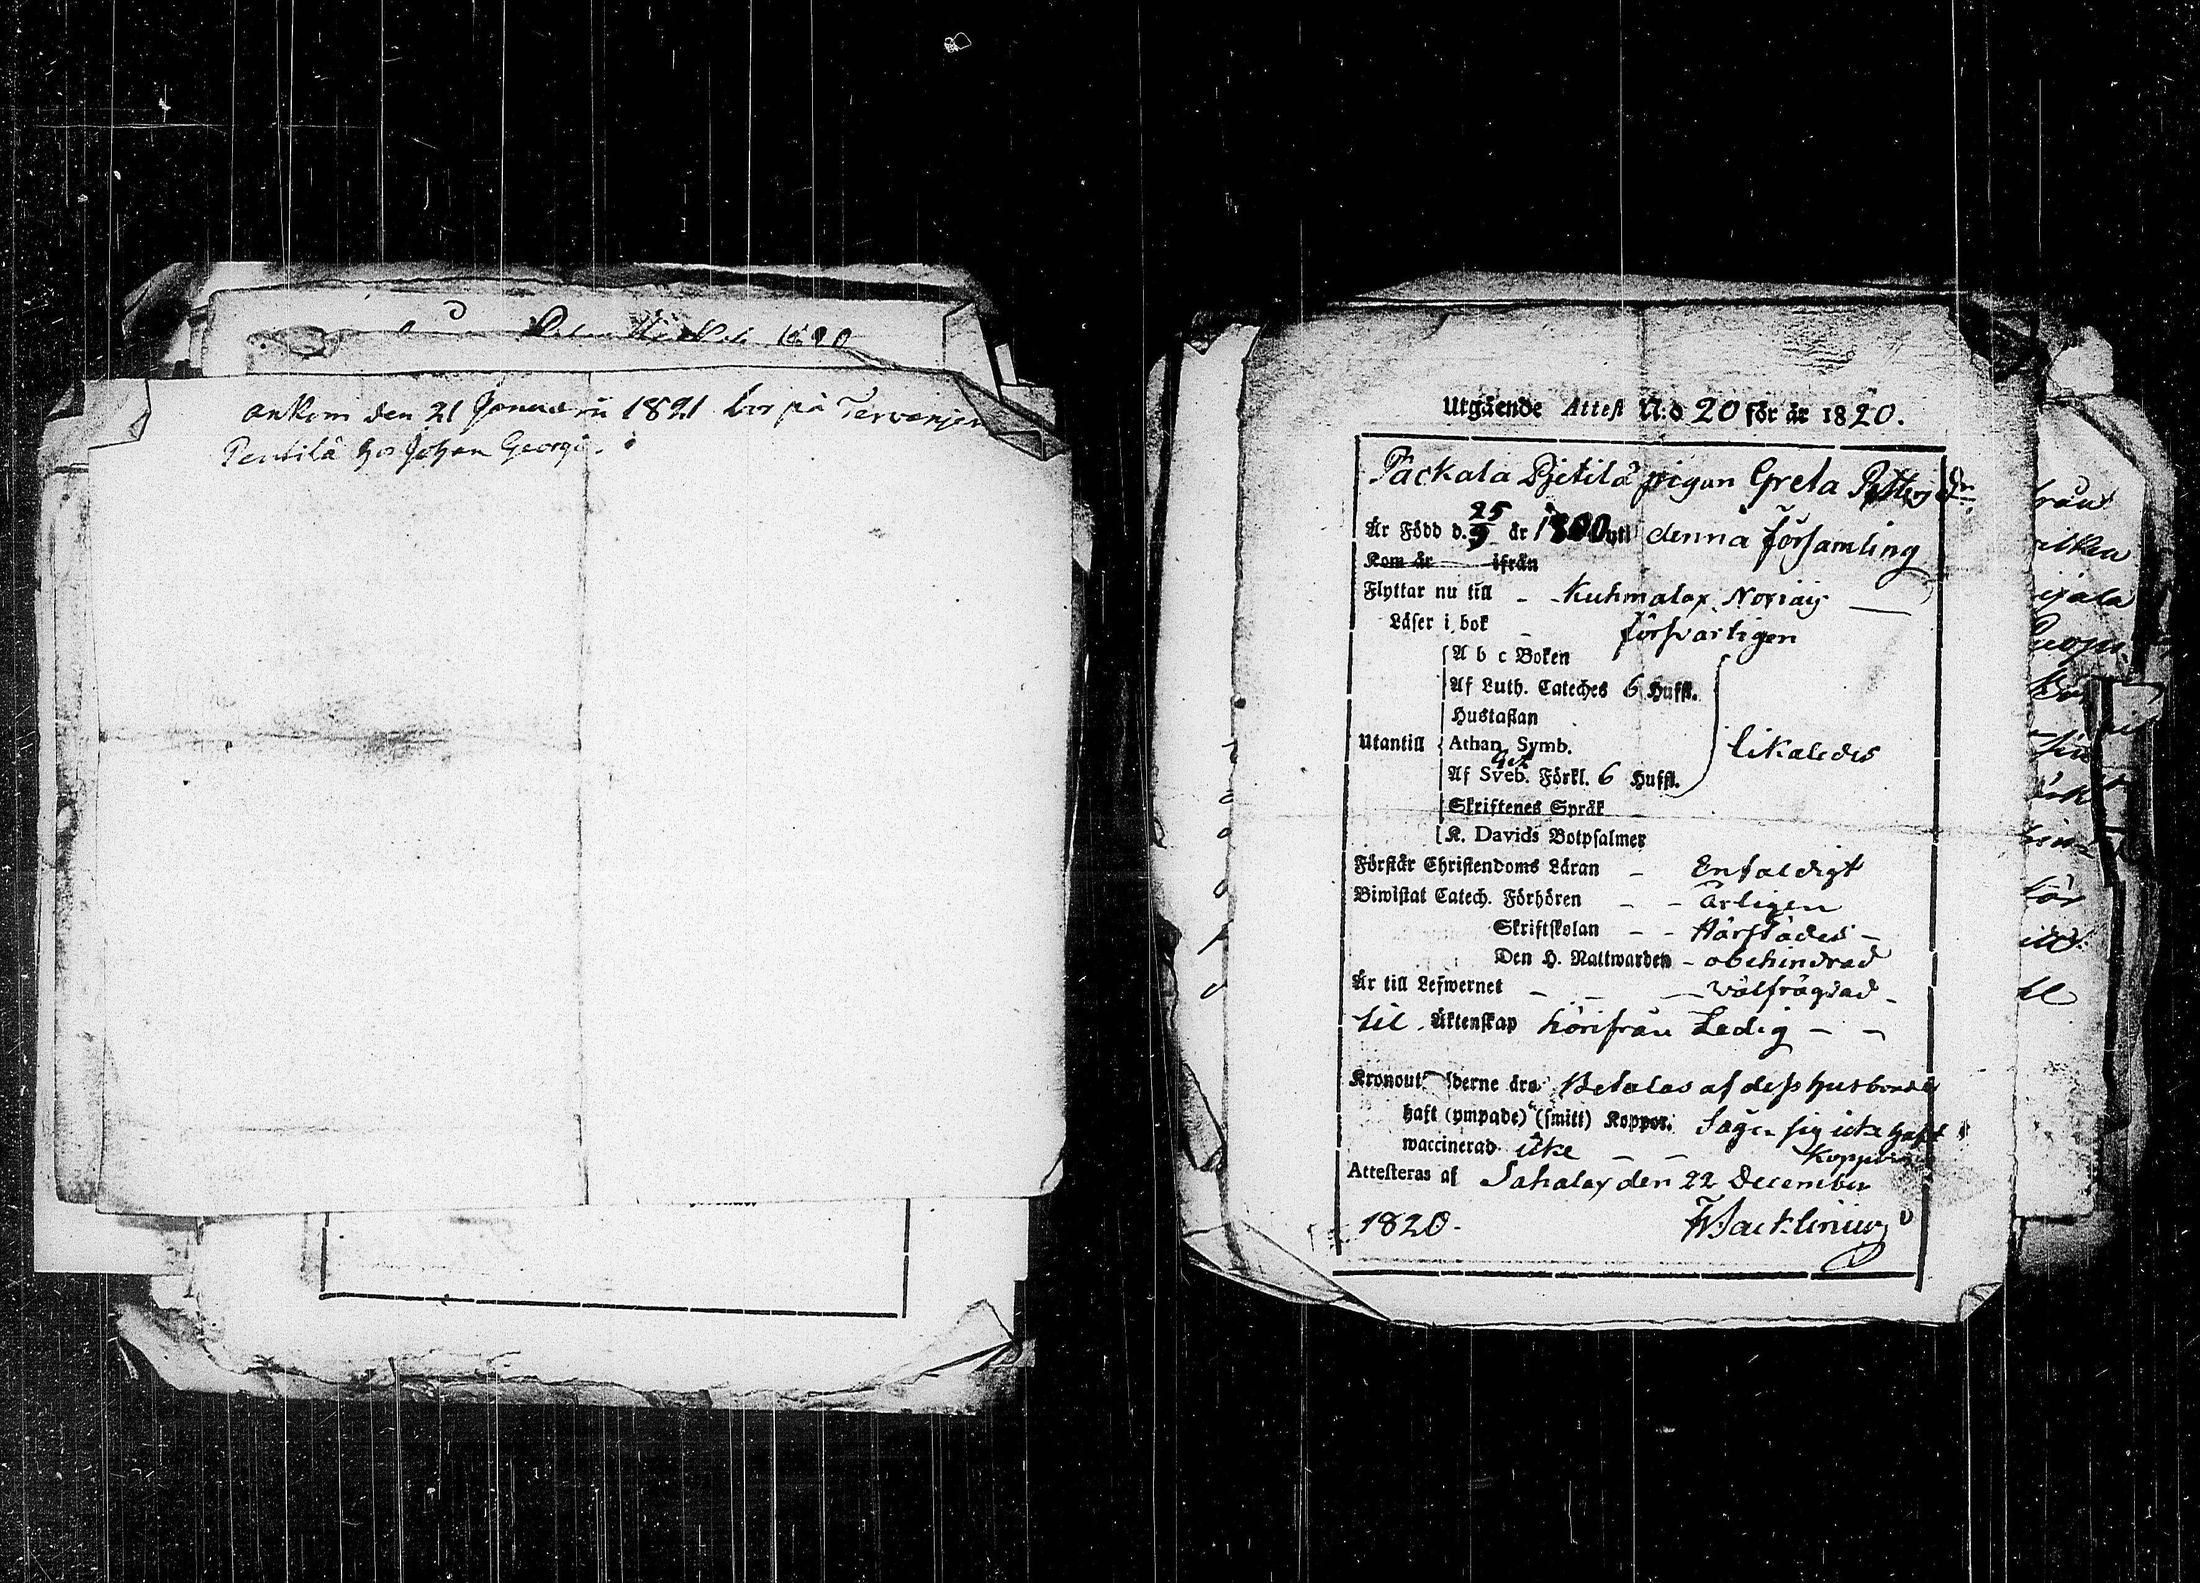 1820
ankom den 21 Januarii 1821 bor på
Pentilä hos Johan Georgs.
Utgående Attest N:o 20 för år 1820.
Packala Pjetilä pigan Greta Pettersdr
Är Född d. 25/9 år 1800 uti denna församling
Kom år ifrån
Flyttar nu till - - Kuhmalax
Läser i bok - försvarligen
A b c Boken
Af Luth. Cateches 6 Hufst.
Hustaflan
Utantill Athan. Symb. likaledes
Af Sveb. Förkl. 6 Hufst.
Skriftenes Språk
K. Davids Botpsalmer
Förstår Christendoms Läran - Enfaldigt
Biwistat Catech. Förhören - - Årligen
Skriftskolan - - Härstädes -
Den H. Nattwarden - obehindrad
Är till Lefwernet - - - Välfrägdad -
til Äktenskap härifrån Ledig - -
betalas af dess husbonde
haft (ympade) (smitt) Koppor. Säger sig icke haft
waccinerad icke - - Koppor
Attesteras af Sahalax den 22 December
1820.